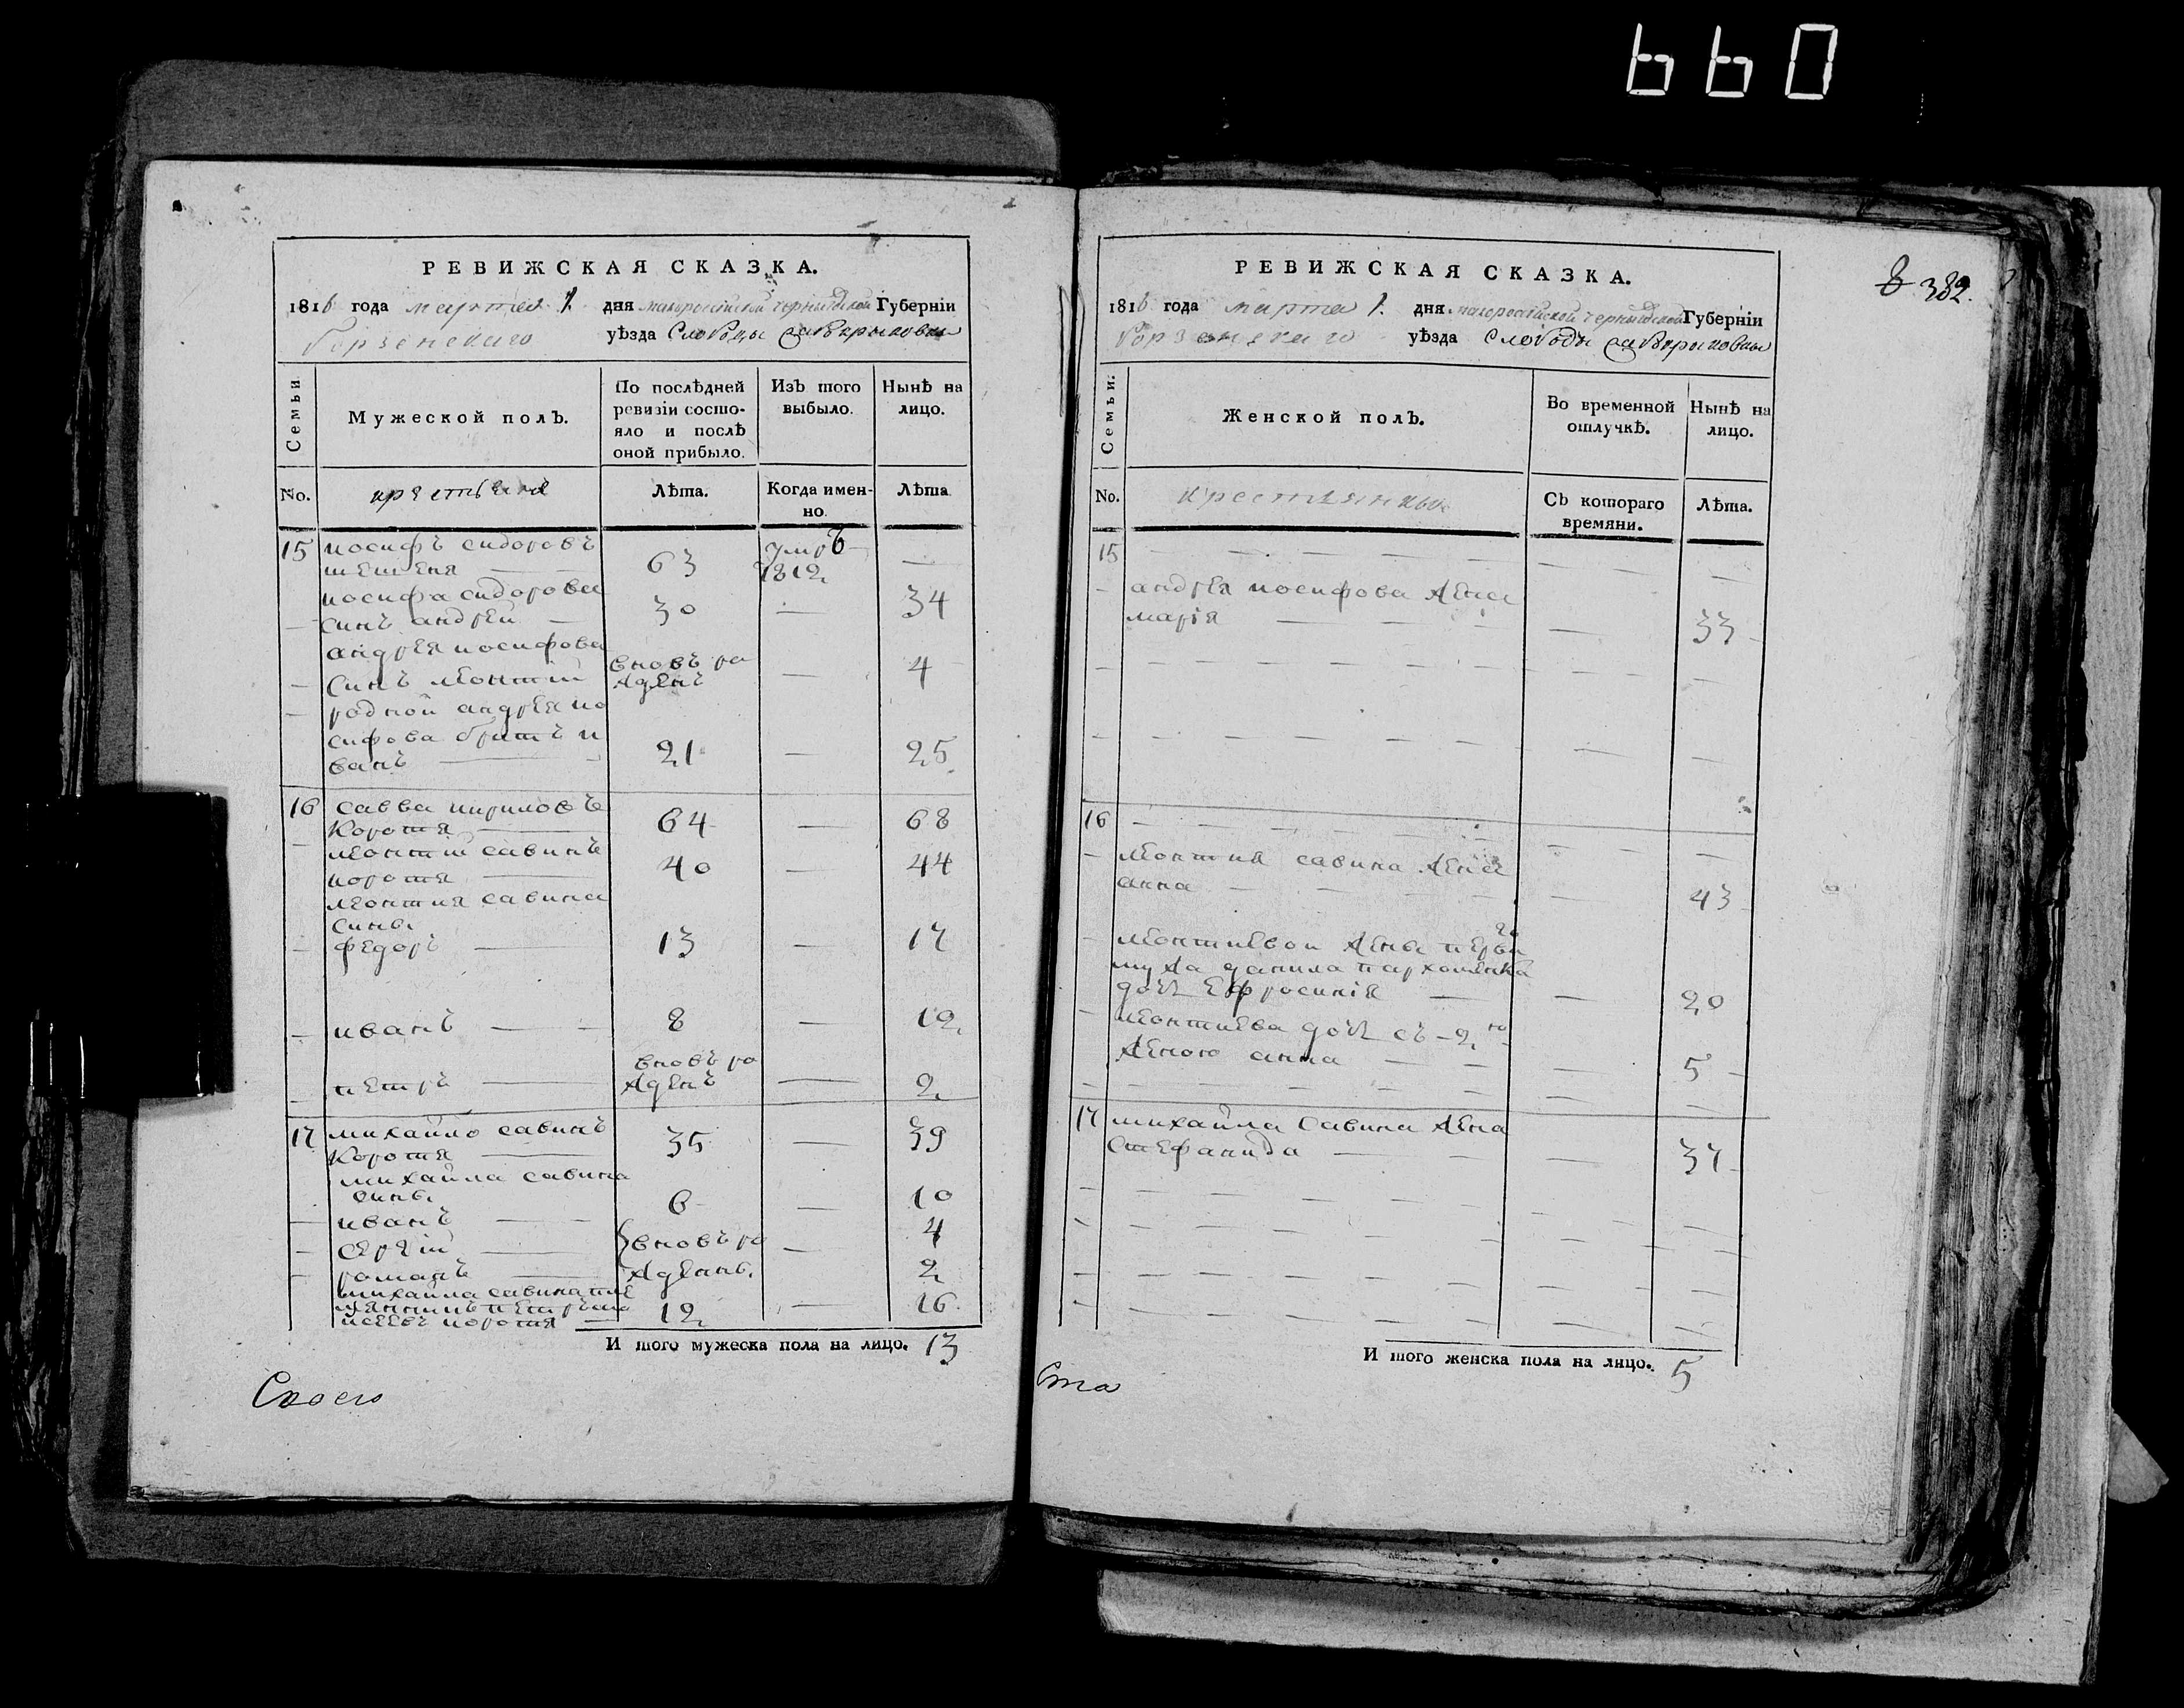 660
РЕВИЖСКАЯ СКАЗКА.
1816 года марта 1. дня малоросійской черниговской Губерніи
Борзенского уѣзда Слободы
Семьи
Мужеской полъ.
По послѣдней ревизіи состояло и послѣ оной прибыло.
Изъ того выбыло.
Нынѣ на лицо.
No.
крестьяня
Лѣта.
Когда именно.
Лѣта
15 иосифъ сидоровъ
шешеня — 63 умръ 1812 —
иосифа сидорова
— синъ андрей — 30 — 34
андрея иосифова
— синъ леонтій вновь рожденъ — 4
— родной андрея ио
сифова братъ и
ванъ — 21 — 25
16 савва кириловъ
Коротя — 64 — 68
— леонтій савинъ
коротя — 40 — 44
леонтия савина
сины
— федоръ — 13 — 17
— иванъ — — 8 — 12
— петръ — вновъ рожденъ — 2
17 михайло савинъ
Коротя — 35 — 39
михайла савина
сины
— иванъ — — 6 — 10
— сергій — вновъ рождены — 4
— романъ — 2
михайла савина пле
мянникъ петръ
коротя — 12 — 16
И того мужеска пола на лицо. 13
Своего
8 382.
РЕВИЖСКАЯ СКАЗКА.
1816 года марта 1. дня малоросійской черниговской Губерніи
Борзенскаго уѣзда Слободы
Семьи.
Женской полъ.
Во временной отлучкѣ.
Нынѣ на лицо.
No.
крестьянки
Съ котораго времяни.
Лѣта.
15 — — — — —
— андрея иосифова жена
марія — — — — 33
— — — — — —
— — — — — —
16 — — — — —
— леонтия савина жена
анна — — — — 43
— леонтиевой жены первого
мужа данила пархоменка
дочь Ефросинія — — 20
— леонтиева дочь съ 2ю
женою анна — — — 5
— — — — — —
17 михайла савина жена
Стефанида — — — 37
— — — — — —
— — — — — —
— — — — — —
— — — — — —
И того женска пола на лицо. 5